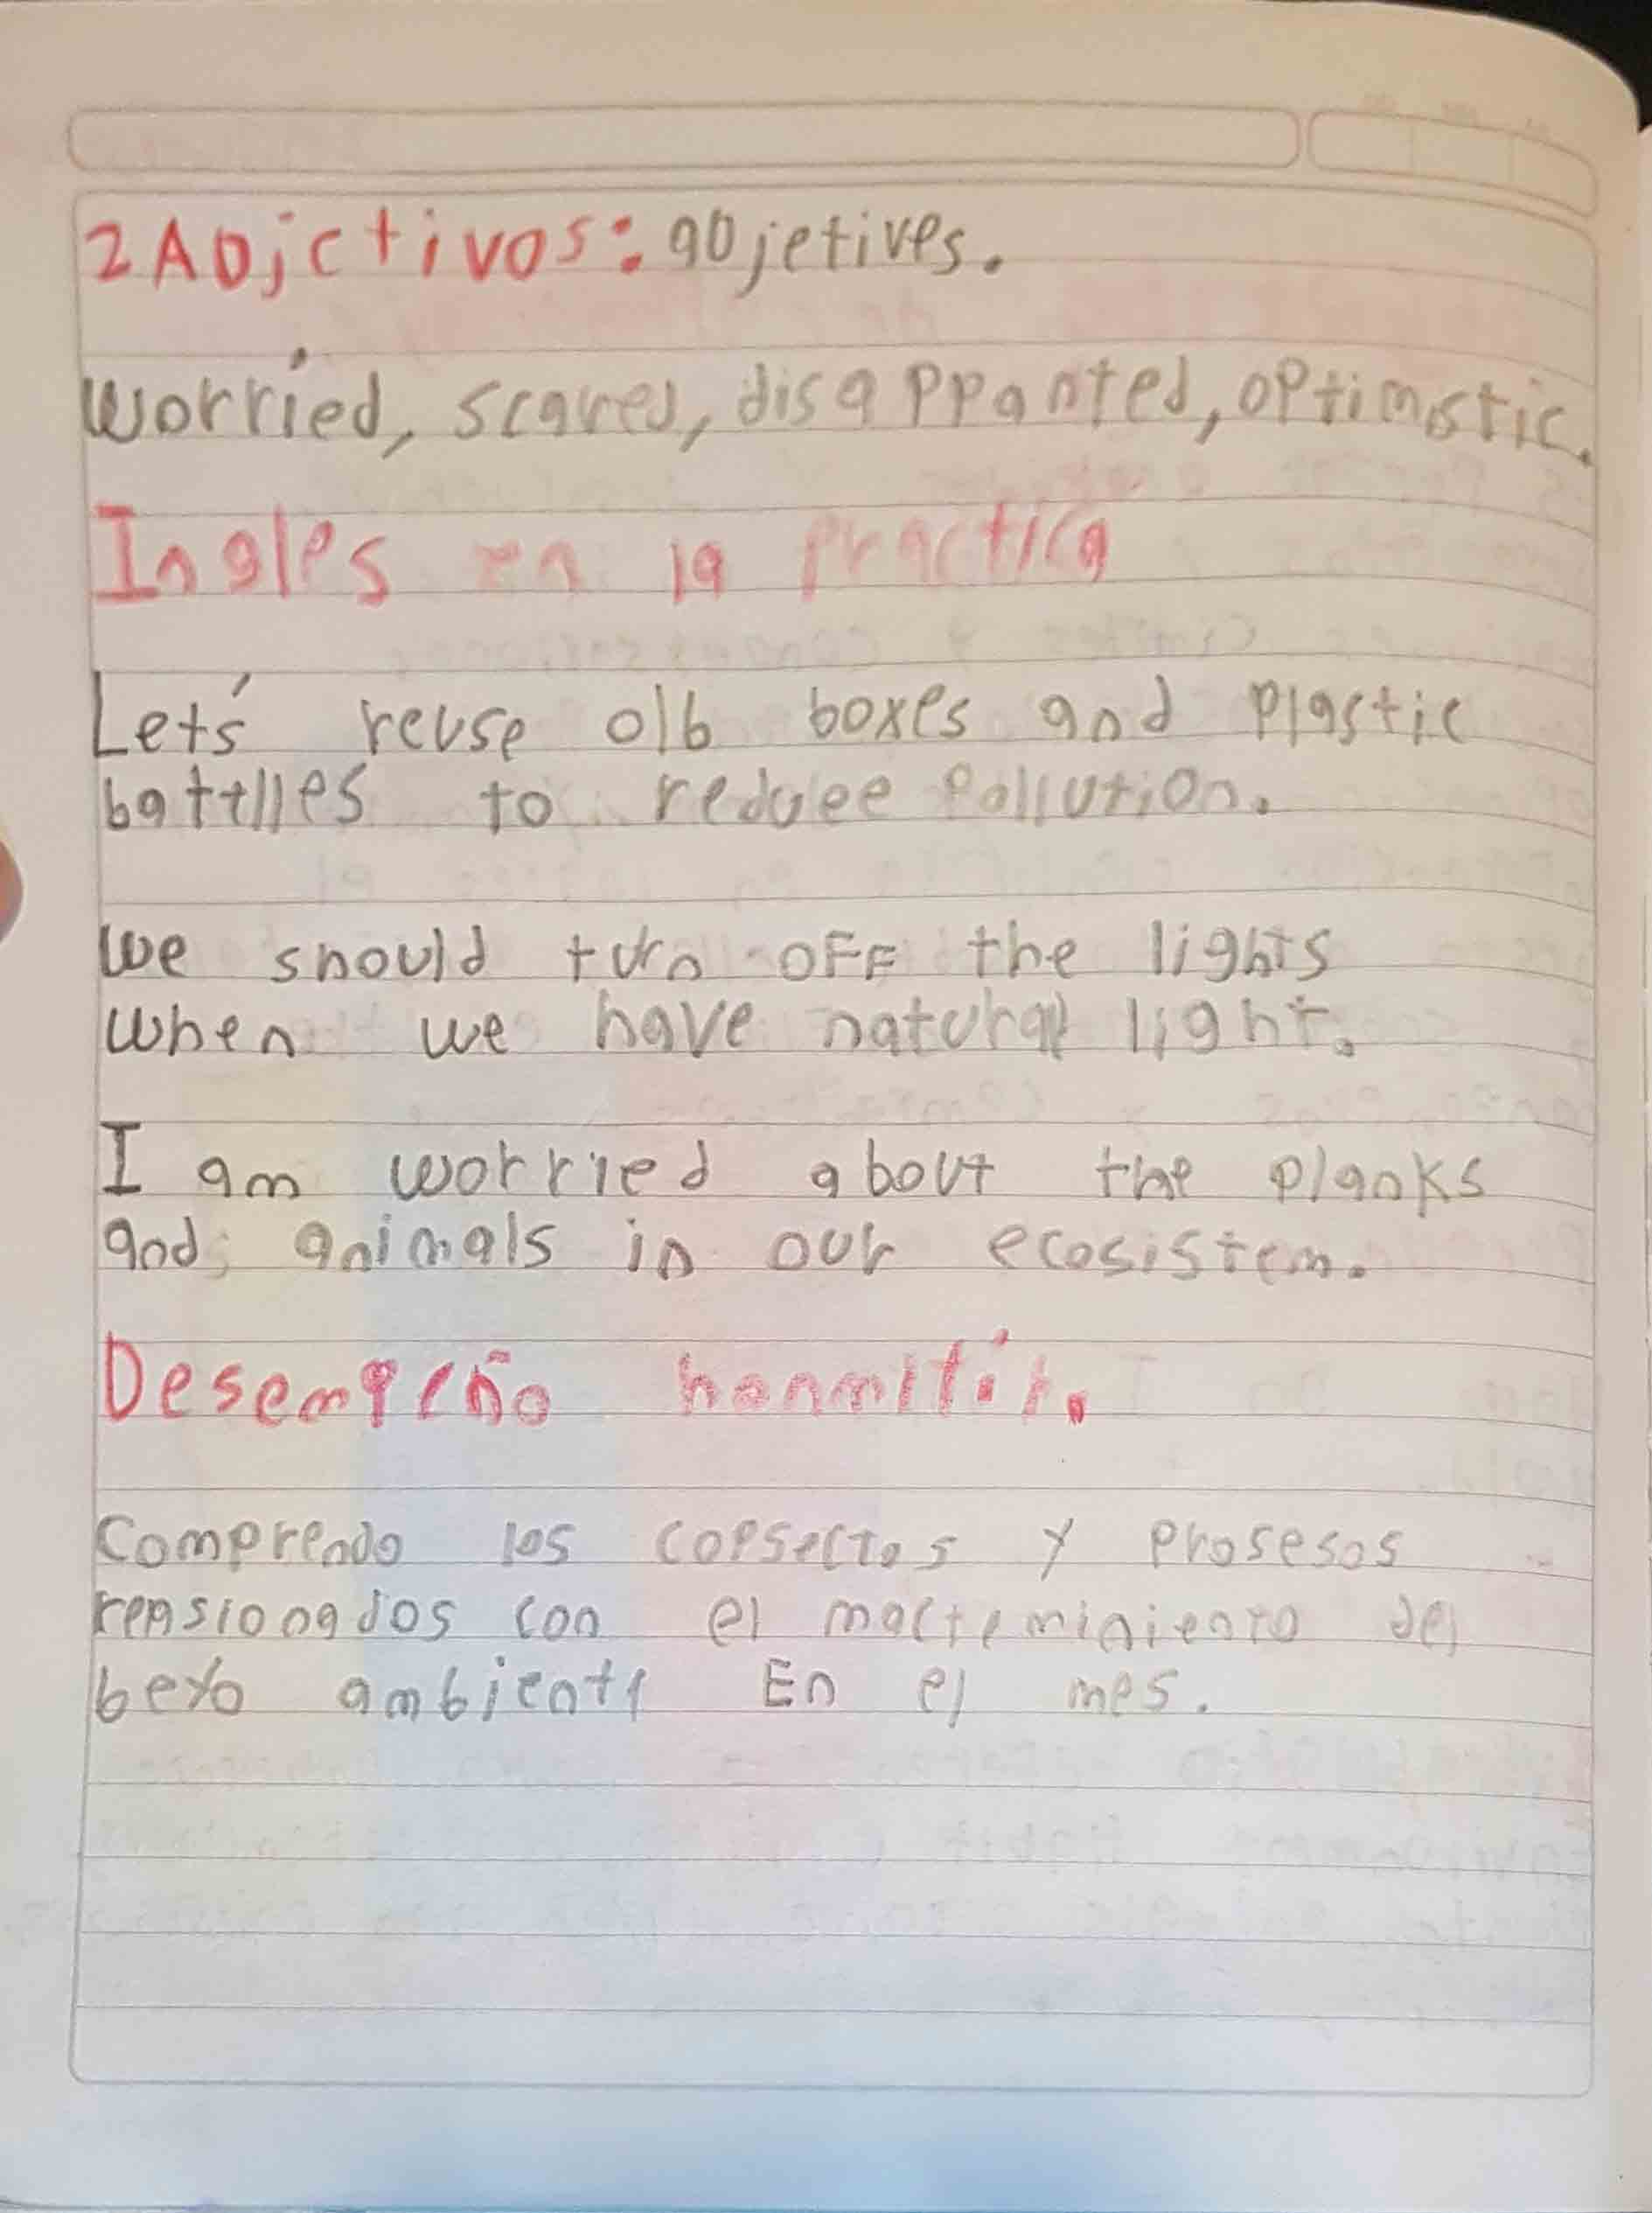 2 Adjctivos: adjetives.
Worried, scared, disappanted, optimistic.
Ingles en la practica
Let's reuse olb boxes and plastic
battlles to reducee pollution.
We should turn off the lights
when we have natural light.
I am worried about the planks
and animals in our ecosistem.
Desempeño
Comprendo los copsectos y prosesos
rensionados con el macteminiento del
bexo ambiente En el mes.